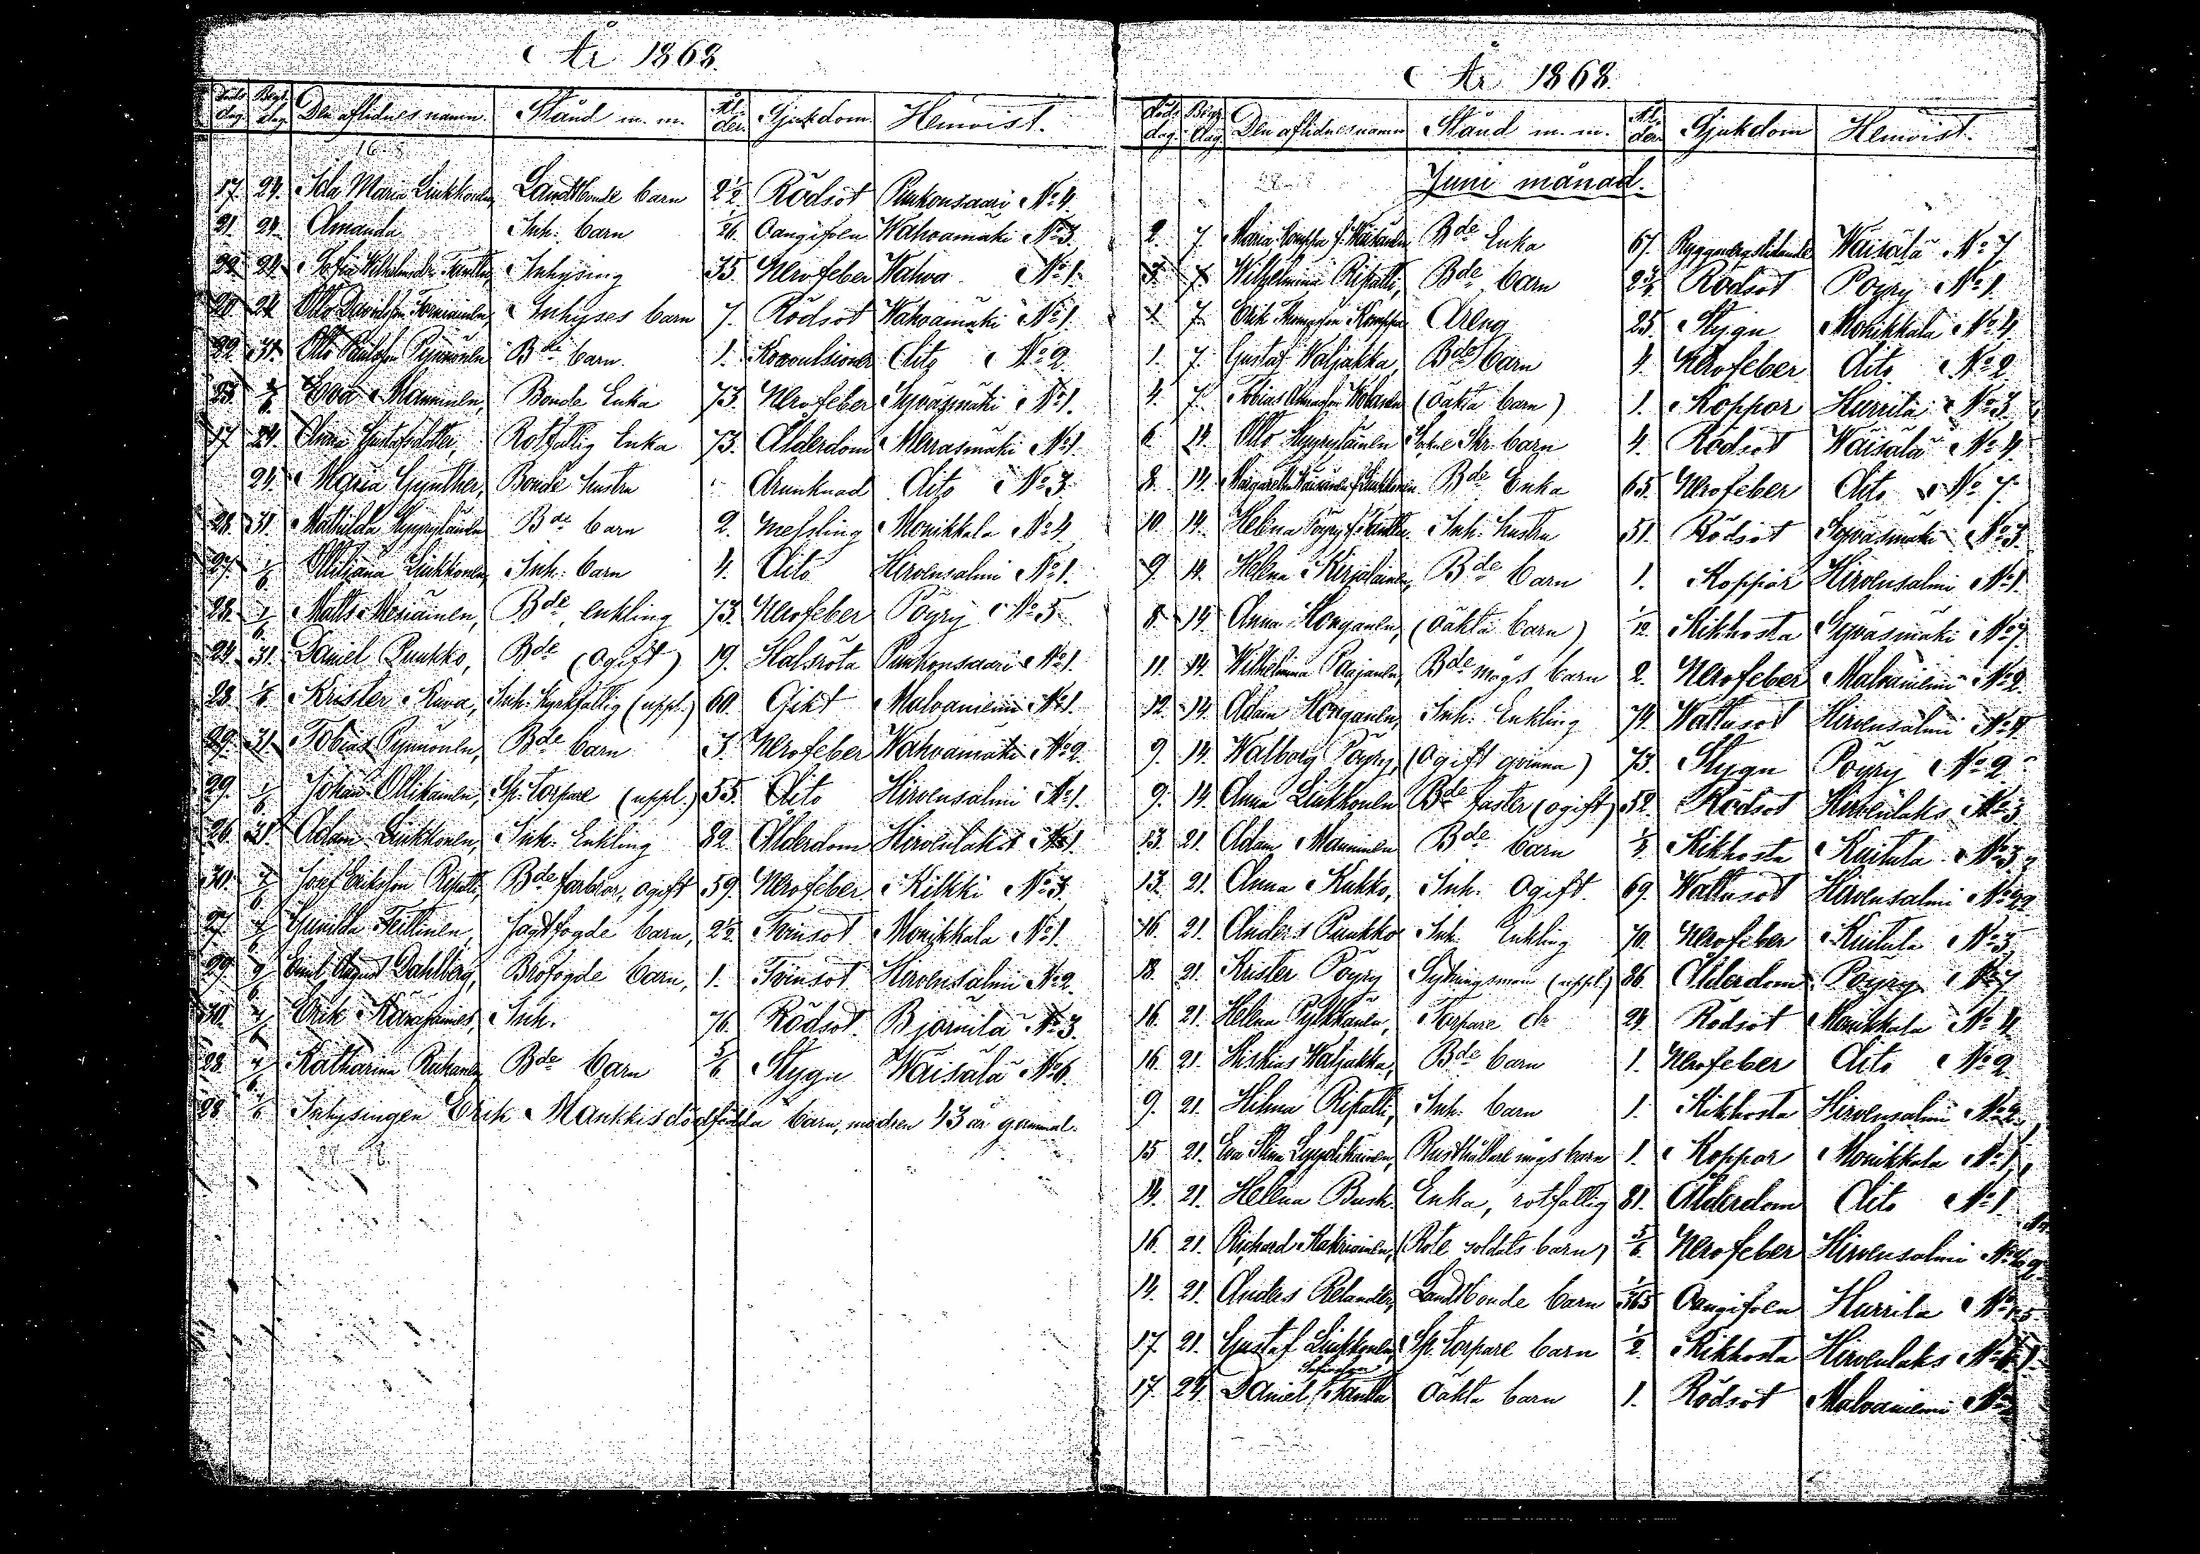 År 1868.
Döds dag. Begr. dag. Den aflidnes namn. Stånd m. m. Ål- der. Sjukdom Hemvist.
17. 24. Ida Maria Liukkonen, Landtbonde barn 2½ Rödsot Punkonsaari No 4.
21. 24. Amanda Inh. barn 1/26. Oangifven Wahvamäki No 3.
22. 24. Sofia Wilhelmsdr Tanttu, Inhysing 35. Nervfeber Wahva No 1.
20. 24. Otto Davidsson Torniainen, Inhyses barn 7. Rödsot Wahvamäki No 1.
29. 31. Otto Paulsson Pynnönen Bde barn. 1. Konvulsioner Dito No 2.
25. 7/6 Eva Manninen, Bonde Enka 73. Nervfeber Syväsmäki No 1.
17. 24. Anna Gustafsdotter, Rotfattig Enka 73. Ålderdom Merrasmäki No 1.
24. Maria Gynther, Bonde hustru Drunknad Dito No 3.
28. 31. Mathilda Hyyryläinen Bde barn 2. Messling Monikkala No 4
27. 7/6 Liukkonen, Inh. barn 4. Dito Hirvensalmi No 1.
28. 7/6 Matts Mesiäinen, Bde enkling 73. Nervfeber Pöyry No 5
24. 31. Daniel Punkko, Bde (Ogift) 19. Halsröta Punkonsaari No 1.
23. Krister Kuva, Inh. Kyrkfattig (uppl.) 60. Gikt Malvaniemi No 1.
29. 31. Tobias Pynnönen, Bde barn 3. Nervfeber Wahvamäki No 2.
29. 7/6 Johan Ollikainen, Sp. torpare (uppl.) 55. Dito Hirvensalmi No 1.
26. 31. Adam Liukkonen, Inh. Enkling 82. Ålderdom Hirvenlaks No 1.
30. 7/6 Josef Eriksson Ripatti, Bde farbror, ogift 59. Nervfeber Kilkki No 3.
27. 7/6 Gunilda Teittinen, Jagtfogde barn, 2½ Tvinsot Monikkala No 1.
29. Emil August Dahlberg, Brofogde barn, 1. Tvinsot Hirvensalmi No 2.
30. 7/6 Erik Inh. 76. Rödsot. Björnilä No 3.
28. 7/6 Katharina Bde barn 5/6 Stygn Wäisälä No 6.
28. 7/6 Inhysingen Erik Mankkis dödfödda barn, modren 43 år gammal.
År 1868.
Döds dag. Begr. dag Den aflidnes namn Stånd m. m. Ål- der Sjukdom Hemvist.
Juni månad.
2. 7. Maria Komppa f. Wäisänen Bde Enka 67. Ryggvärgslidande Wäisälä No 7
3. 7. Wilhelmina Ripatti, Bde barn 2¾ Rödsot Pöyry No 1.
7. Erik Komppa Dreng 25. Stygn Monikkala No 4.
1. 7. Gustaf Waljakka, Bde barn 4. Nervfeber Dito No 2
4. 7. Tobias (Oäkta barn) 1. Koppor Hurrila No 3.
6. 14. Otto Hyyryläinen barn 4. Rödsot Wäisälä No 4.
8. 14. Margaretha Wäisänen f. Liukkonen Bde Enka 65. Nervfeber Dito No 7.
10. 14. Helena Pöyry f. Tanttu Inh. hustru 51. Rödsot Syväsmäki No 3
9. 14. Helena Kirjalainen, Bde barn 1. Koppor Hirvensalmi No 1.
8. 14. Anna Honganen, (Oäkta barn) 1/12 Kikhosta Syväsmäki No 7
11. 14. Wilhelmina Parjanen, Bde mågs barn 2. Nervfeber Malvaniemi No 2
12. 14. Adam Honganen, Inh. Enkling 74. Wattusot Hirvensalmi No 4
9. 14. Walborg Pöyry, (Ogift qvinna) 73. Stygn Pöyry No 2
9. 14. Anna Liukkonen Bde faster (ogift) 52. Rödsot Hirvenlaks No 3
13. 21. Adam Manninen Bde barn Kikhosta Kuitula No 3
13. 21. Anna Kukko, Inh. Ogift. 69. Wattusot Hirvensalmi No 22
16. 21. Anders Punkko Inh. Enkling 70. Nervfeber Kuitula No 3
18. 21. Krister Pöyry Sytningsman (uppl.) 86. Ålderdom Pöyry No 7
16. 21. Helena Pylkkänen, Torpare dr 24. Rödsot Monikkala No 4
16. 21. Hiskias Waljakka, Bde barn 1. Nervfeber Dito No 2
9. 21. Hilma Ripatti, Inh. barn 1. Kikhosta Hirvensalmi No 2
15 21. Eva Stina Lyytikäinen, Rusthållare mågs barn 1. Koppor Monikkala No 1,
14. 21. Helena Busk Enka, rotfattig 81. Ålderdom Dito No 1
16. 21. Richard Kakriainen, (Rote soldats barn) 5/6. Nervfeber Hirvensalmi No
14. 21. Anders Relander, Landtbonde barn 1/365 Oangifven Hurrila No
17. 21. Gustaf Liukkonen, Sp. torpare barn 1/2. Kikhosta Hirvenlaks No 1.
17. 24. Daniel Tanttu Oäkta barn 1. Rödsot Malvaniemi No